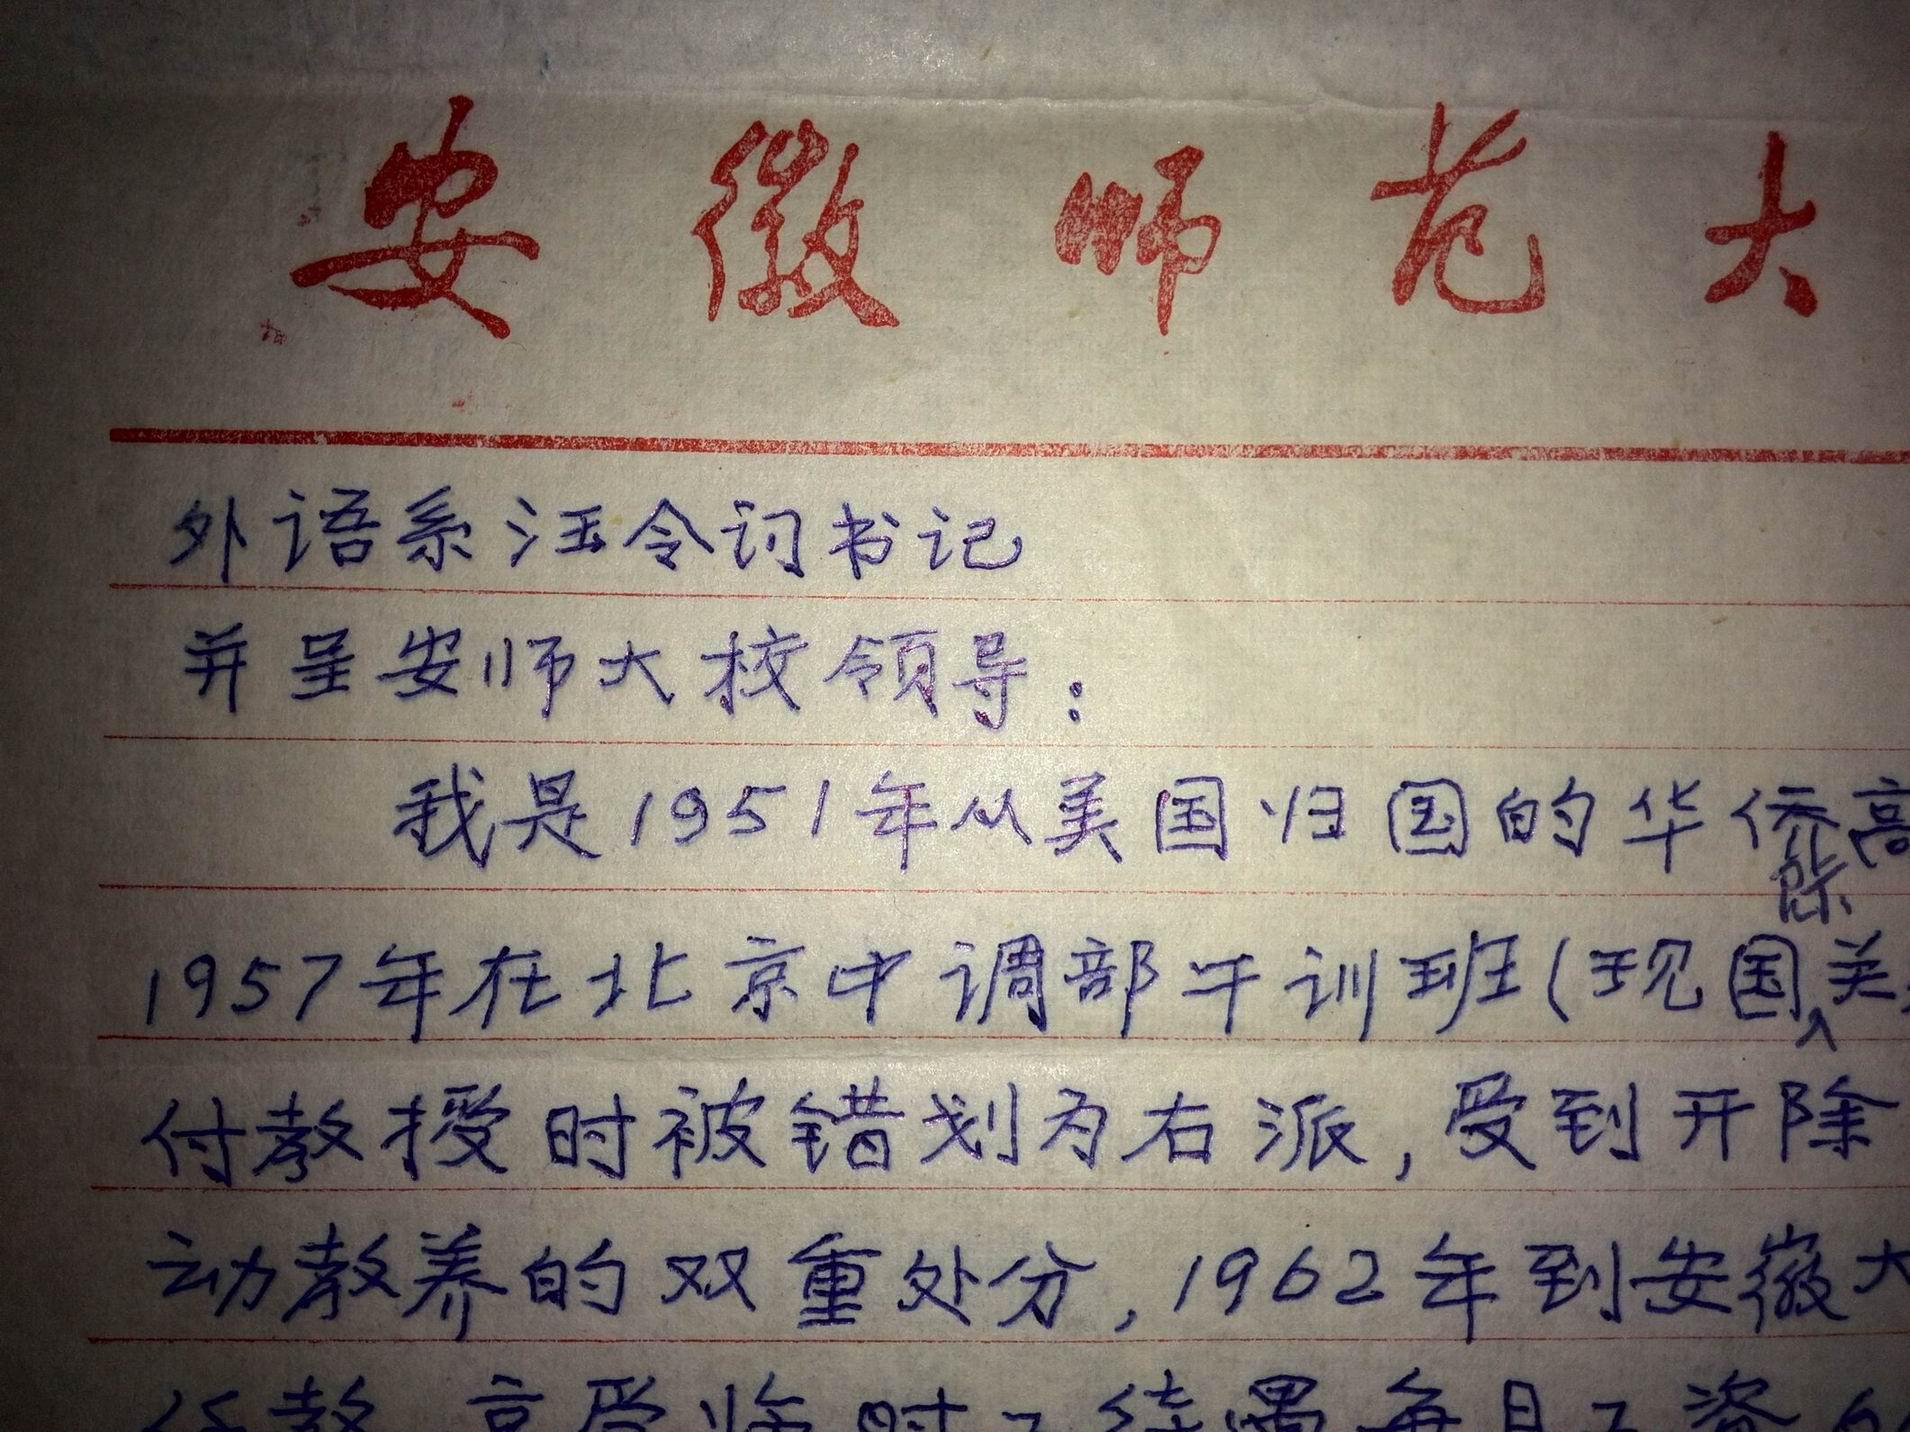 安徽师范大
外语系汪令词书记
并呈安师大校领导:
我是1951年从美国归国的华侨高
1957年在北京中调部干训班(现国际关
付教授时被错划为右派,受到开除
动教养的双重处分,1962年到安徽大
任教,享受临时工待遇每月工资60